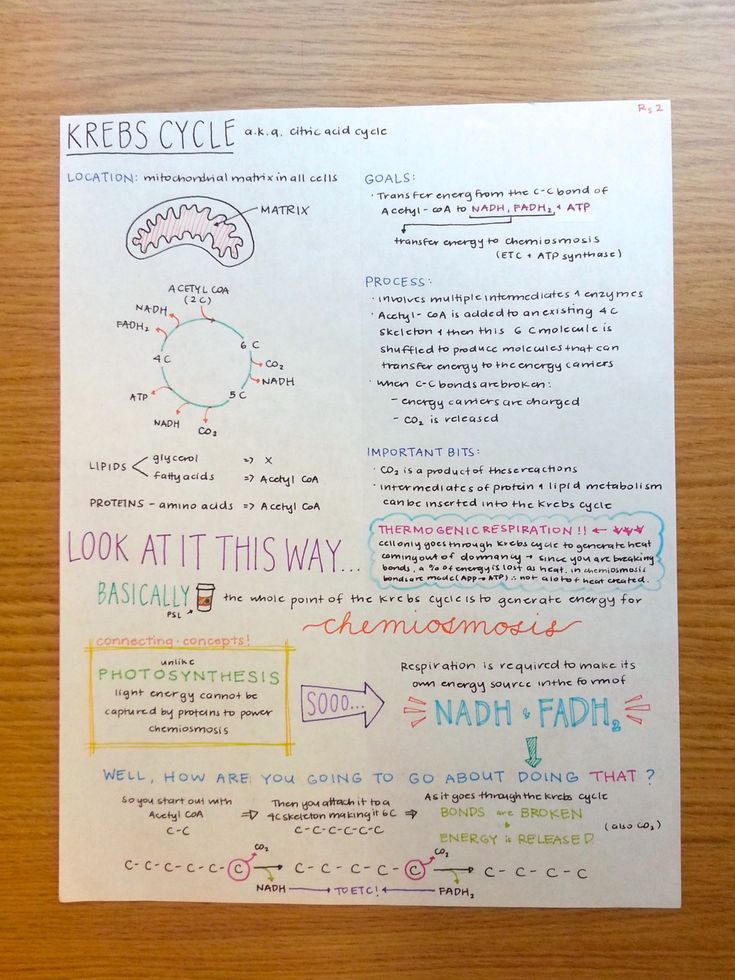 Rs 2
KREBS CYCLE a.k.a. citric acid cycle
LOCATION: mitochondrial matrix in all cells
MATRIX
ACETYL COA
(2C)
NADH
FADH₂
6 C
CO₂
NADH
4 C
5C
ATP
NADH
CO₂
LIPIDS
glycerol => X
fatty acids => Acetyl CoA
PROTEINS - amino acids => Acetyl CoA
GOALS:
· Transfer energ from the C-C bond of
Acetyl-CoA to NADH, FADH₂ + ATP
transfer energy to chemiosmosis
(ETC + ATP synthase)
PROCESS:
· involves multiple intermediates + enzymes
· Acetyl-CoA is added to an existing 4C
skeleton + then this 6 C molecule is
shuffled to produce molecules that can
transfer energy to the energy carriers
· when C-C bonds are broken:
- energy carriers are charged
- CO₂ is released
IMPORTANT BITS:
· CO₂ is a product of these reactions
· intermediates of protein + lipid metabolism
can be inserted into the Krebs cycle
THERMOGENIC RESPIRATION !! ←
cell only goes through Krebs cycle to generate heat
coming out of dormancy → since you are breaking
bonds, a % of energy is lost as heat. in chemiosmosis
bonds are made (ADP → ATP) ∴ not a lot of heat created.
LOOK AT IT THIS WAY...
BASICALLY the whole point of the Krebs cycle is to generate energy for
PSL
chemiosmosis
connecting · concepts!
unlike
PHOTOSYNTHESIS
light energy cannot be
captured by proteins to power
chemiosmosis
SOOO...
Respiration is required to make its
own energy source in the form of
NADH + FADH₂
WELL, HOW ARE YOU GOING TO GO ABOUT DOING THAT?
So you start out with
Acetyl COA
C-C
⇒
Then you attach it to a
4C skeleton making it 6C ⇒
C-C-C-C-C-C
As it goes through the Krebs cycle
BONDS are BROKEN
+
ENERGY is RELEASED (also CO₂)
CO₂
CO₂
C-C-C-C-C-C → C-C-C-C-C → C-C-C-C
NADH → TO ETC! ← FADH₂